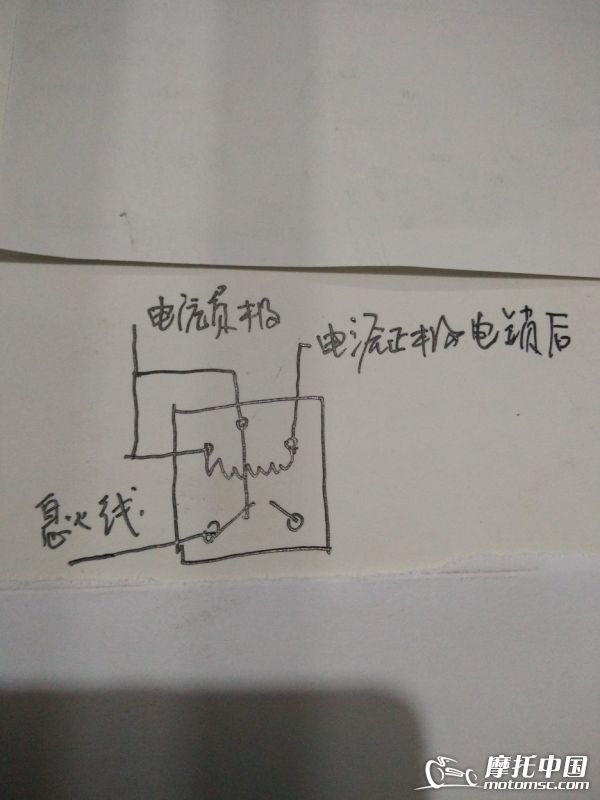 电源负极
电源正极电锁后
息火线.
摩托中国
motomsc.com